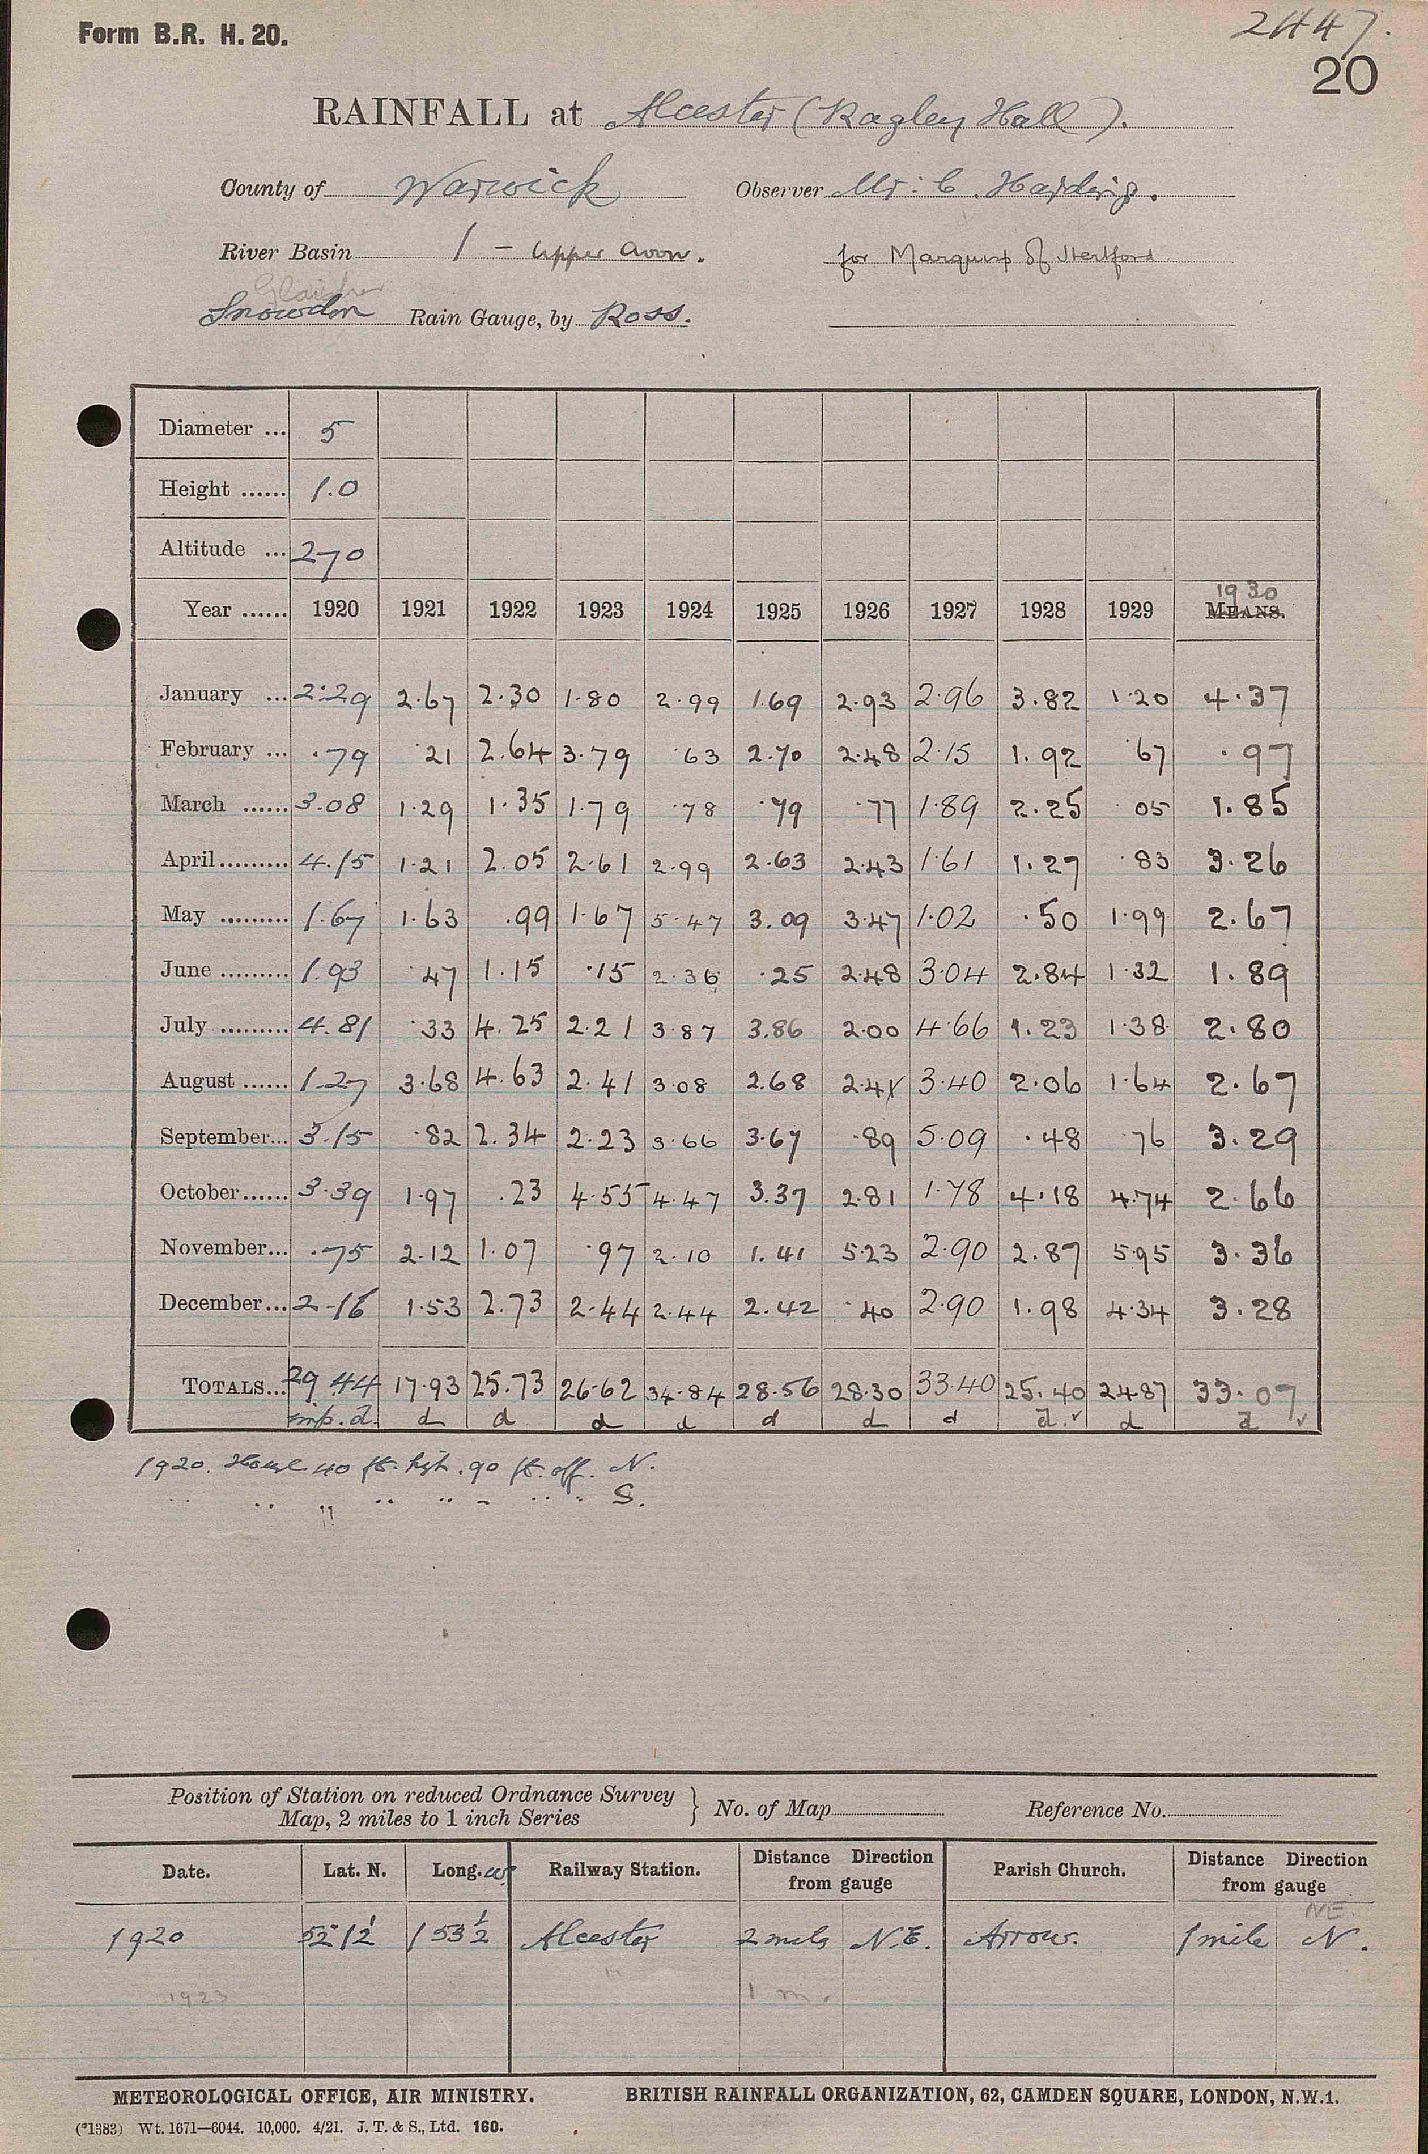 Form B.R. H. 20.
2447.
20
RAINFALL at Alcester (Ragley Hall).
County of Warwick Observer Mr. C. Harding.
River Basin 1 - Upper Avon. for Marquis of Hertford
Glaisher
Snowdon Rain Gauge, by Ross.
Diameter ... 5
Height ...... 1.0
Altitude ... 270
1930
Year ...... 1920 1921 1922 1923 1924 1925 1926 1927 1928 1929 MEANS.
January ... 2.29 2.67 2.30 1.80 2.99 1.69 2.93 2.96 3.82 1.20 4.37
February ... .79 .21 2.64 3.79 .63 2.70 2.48 2.15 1.92 .67 .97
March ...... 3.08 1.29 1.35 1.79 .78 .79 .77 1.89 2.25 .05 1.85
April ......... 4.15 1.21 2.05 2.61 2.99 2.63 2.43 1.61 1.27 .83 3.26
May ......... 1.67 1.63 .99 1.67 5.47 3.09 3.47 1.02 .50 1.99 2.67
June ......... 1.93 .47 1.15 .15 2.36 .25 2.48 3.04 2.84 1.32 1.89
July ......... 4.81 .33 4.25 2.21 3.87 3.86 2.00 4.66 1.23 1.38 2.80
August ...... 1.27 3.68 4.63 2.41 3.08 2.68 2.41 3.40 2.06 1.64 2.67
September... 3.15 .82 2.34 2.23 3.66 3.67 .89 5.09 .48 .76 3.29
October...... 3.39 1.97 .23 4.55 4.47 3.37 2.81 1.78 4.18 4.74 2.66
November... .75 2.12 1.07 .97 2.10 1.41 5.23 2.90 2.87 5.95 3.36
December... 2.16 1.53 2.73 2.44 2.44 2.42 .40 2.90 1.98 4.34 3.28
TOTALS... 29.44 17.93 25.73 26.62 34.84 28.56 28.30 33.40 25.40 24.87 33.07
mp. d. d d d d d d d d. ✓ d d ✓
1920. House 40 ft. high. 90 ft. off. N.
.. .. " .. .. .. .. .. S.
Position of Station on reduced Ordnance Survey } No. of Map Reference No.
Map, 2 miles to 1 inch Series
Date. Lat. N. Long. W. Railway Station. Distance Direction from gauge Parish Church. Distance Direction from gauge
NE.
1920 52 12 1 53½ Alcester 2 miles N.E. Arrow. 1 mile N.
1923 " 1 m.
METEOROLOGICAL OFFICE, AIR MINISTRY. BRITISH RAINFALL ORGANIZATION, 62, CAMDEN SQUARE, LONDON, N.W.1.
(*1383) Wt. 1671—6044. 10,000. 4/21. J. T. & S., Ltd. 160.